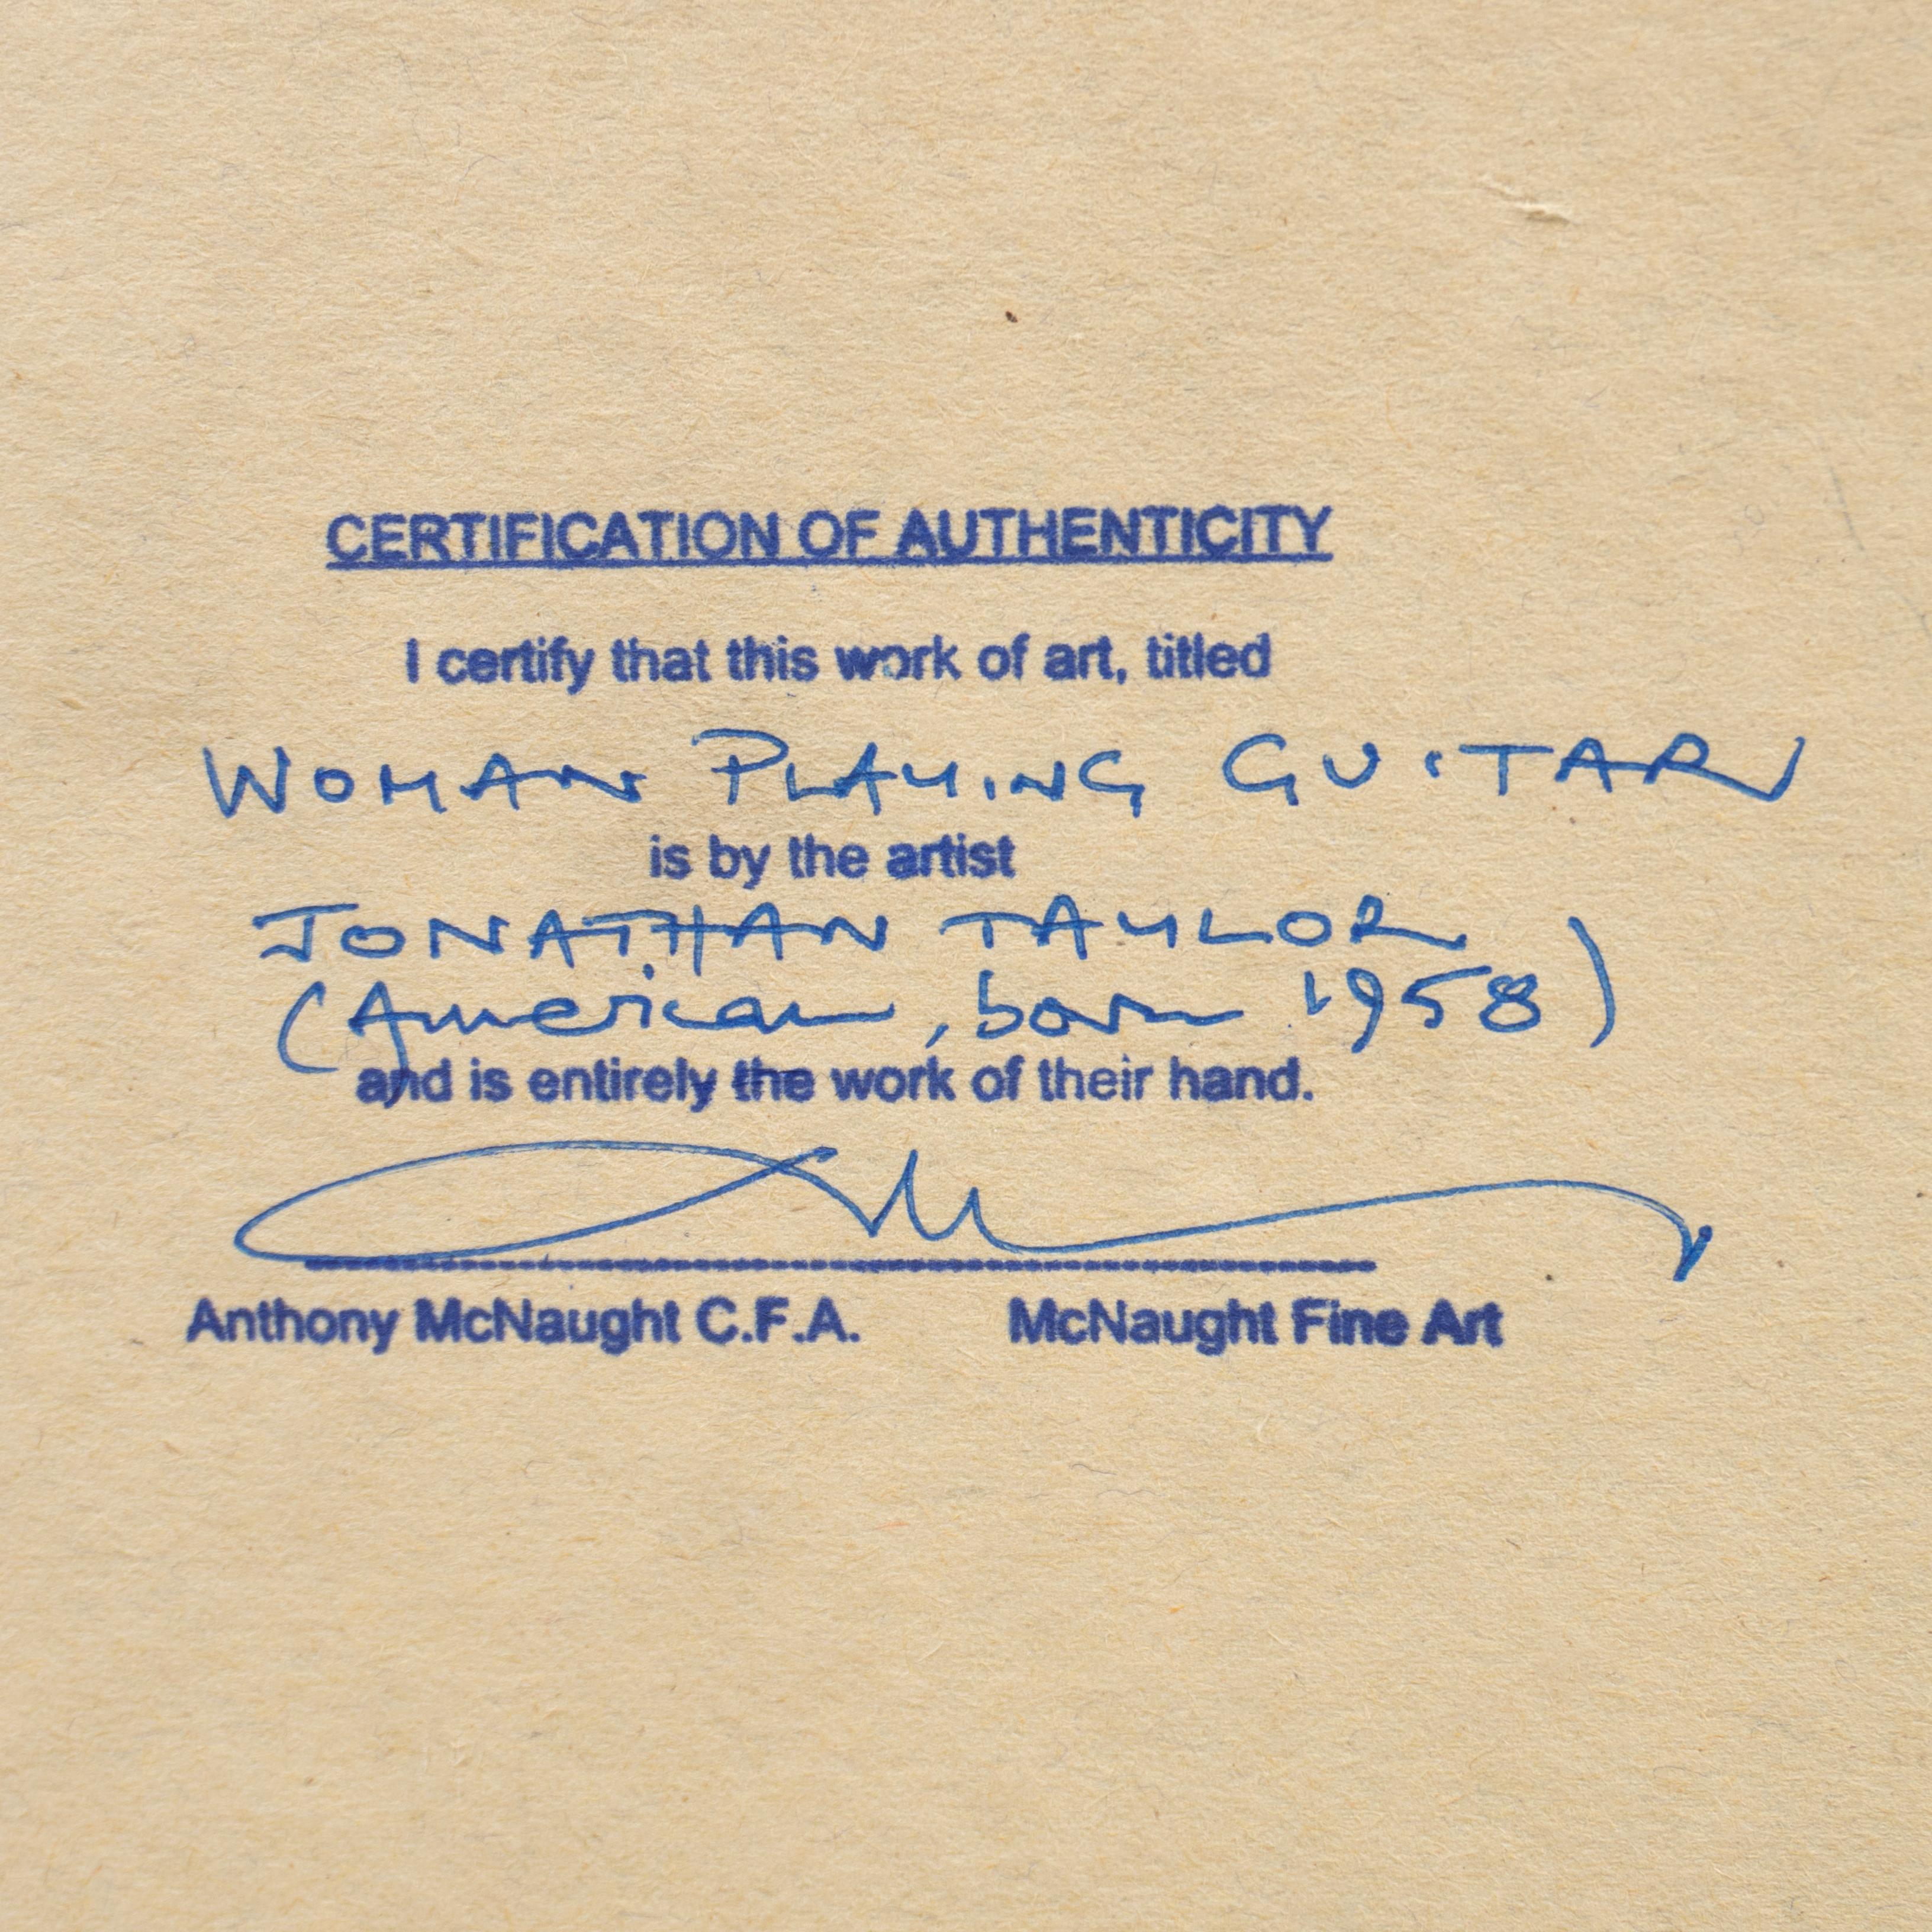 CERTIFICATION OF AUTHENTICITY
I certify that this work of art, titled
WOMAN PLAYING GUITAR
is by the artist
JONATHAN TAYLOR
(American, born 1958)
and is entirely the work of their hand.
Anthony McNaught C.F.A. McNaught Fine Art